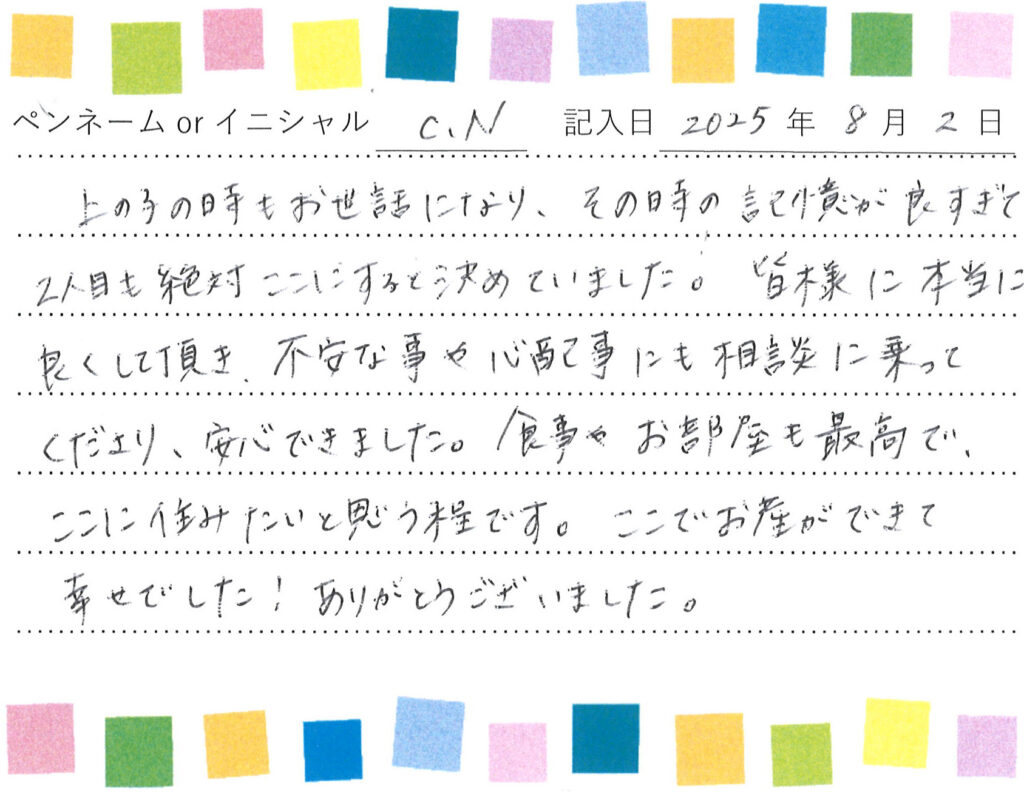 ペンネーム or イニシャル C.N 記入日 2025 年 8 月 2 日
上の子の時もお世話になり、その時の記憶が良すぎて
2人目も絶対ここにすると決めていました。皆様に本当に
良くして頂き、不安な事や心配事にも相談に乗って
くださり、安心できました。食事やお部屋も最高で、
ここに住みたいと思う程です。ここでお産ができて
幸せでした！ありがとうございました。